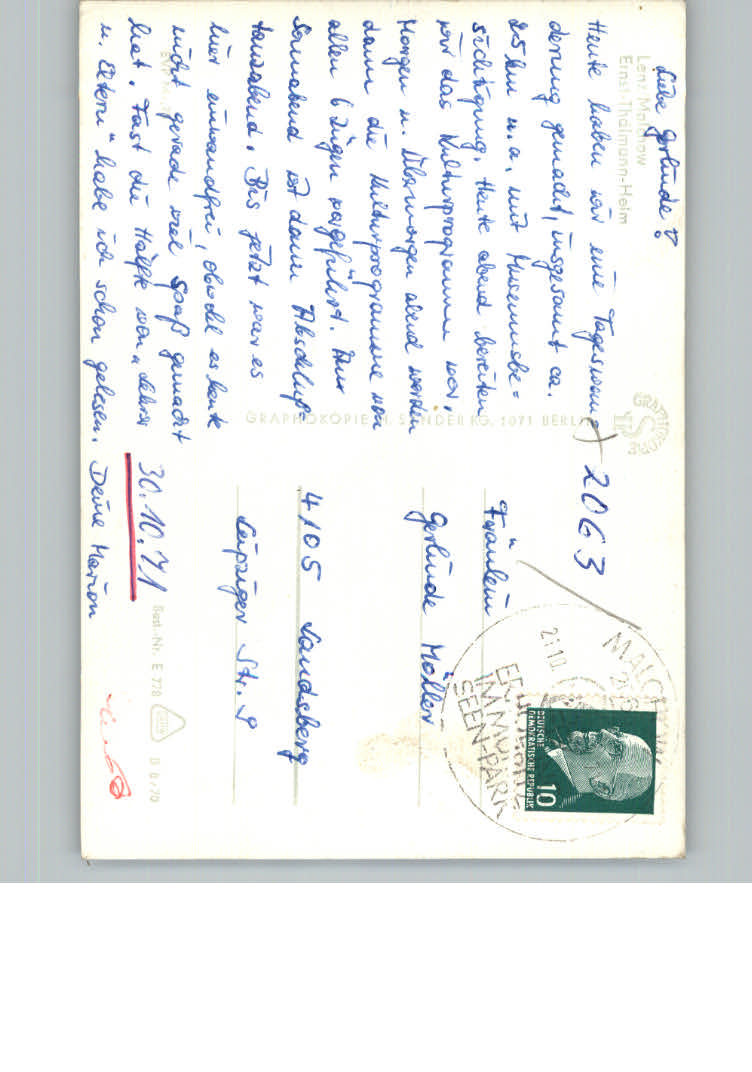 Lenz Malchow
Ernst-Thälmann-Heim
Liebe Gerlinde!
Heute haben wir eine Tageswan-
derung gemacht, insgesamt ca.
25 km u. a. mit Museumsbe=
sichtigung. Heute abend bereiten
wir das Kulturprogramm vor.
Morgen u. Übermorgen abend werden
dann die Kulturprogramme von
allen 6 Zügen vorgeführt. Am
Sonnabend ist dann Abschluß-
tanzabend. Bis jetzt war es
hier einwandfrei, obwohl es heute
nicht gerade viel Spaß gemacht
hat. Fast die Hälfte von „Lehrer
u. Eltern" habe ich schon gelesen. Deine Marion
GRAPHOKOPIE H. SANDER KG, 1071 BERLIN
2063
Fräulein
Gerlinde Möller
4105 Landsberg
Leipziger Str. 9
30.10.71
Best.-Nr. E 728
D 6/70
ERHOLUNG
IM MÜRITZ
SEEN-PARK
DEUTSCHE
DEMOKRATISCHE REPUBLIK
10